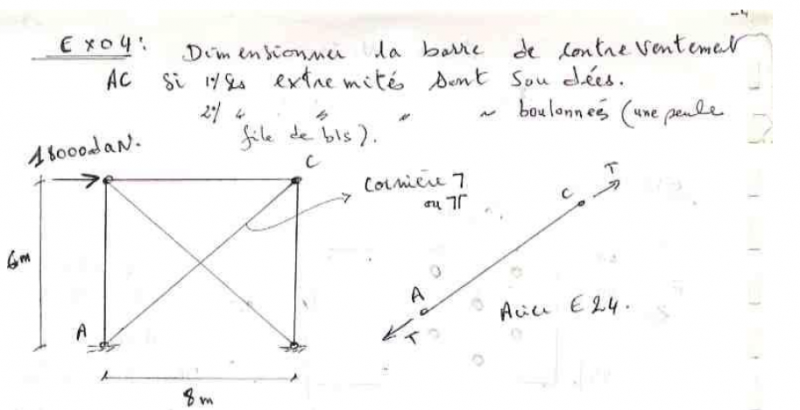 -4
Exo4: Dimensionner la barre de contreventement
AC si 1°/ les extremités sont soudées.
2°/ " " " " boulonnées (une seule
file de bls).
18000daN.
C
cornière ┐
ou ┐┌
6m
A
8m
C
T
A
T
Acier E24.